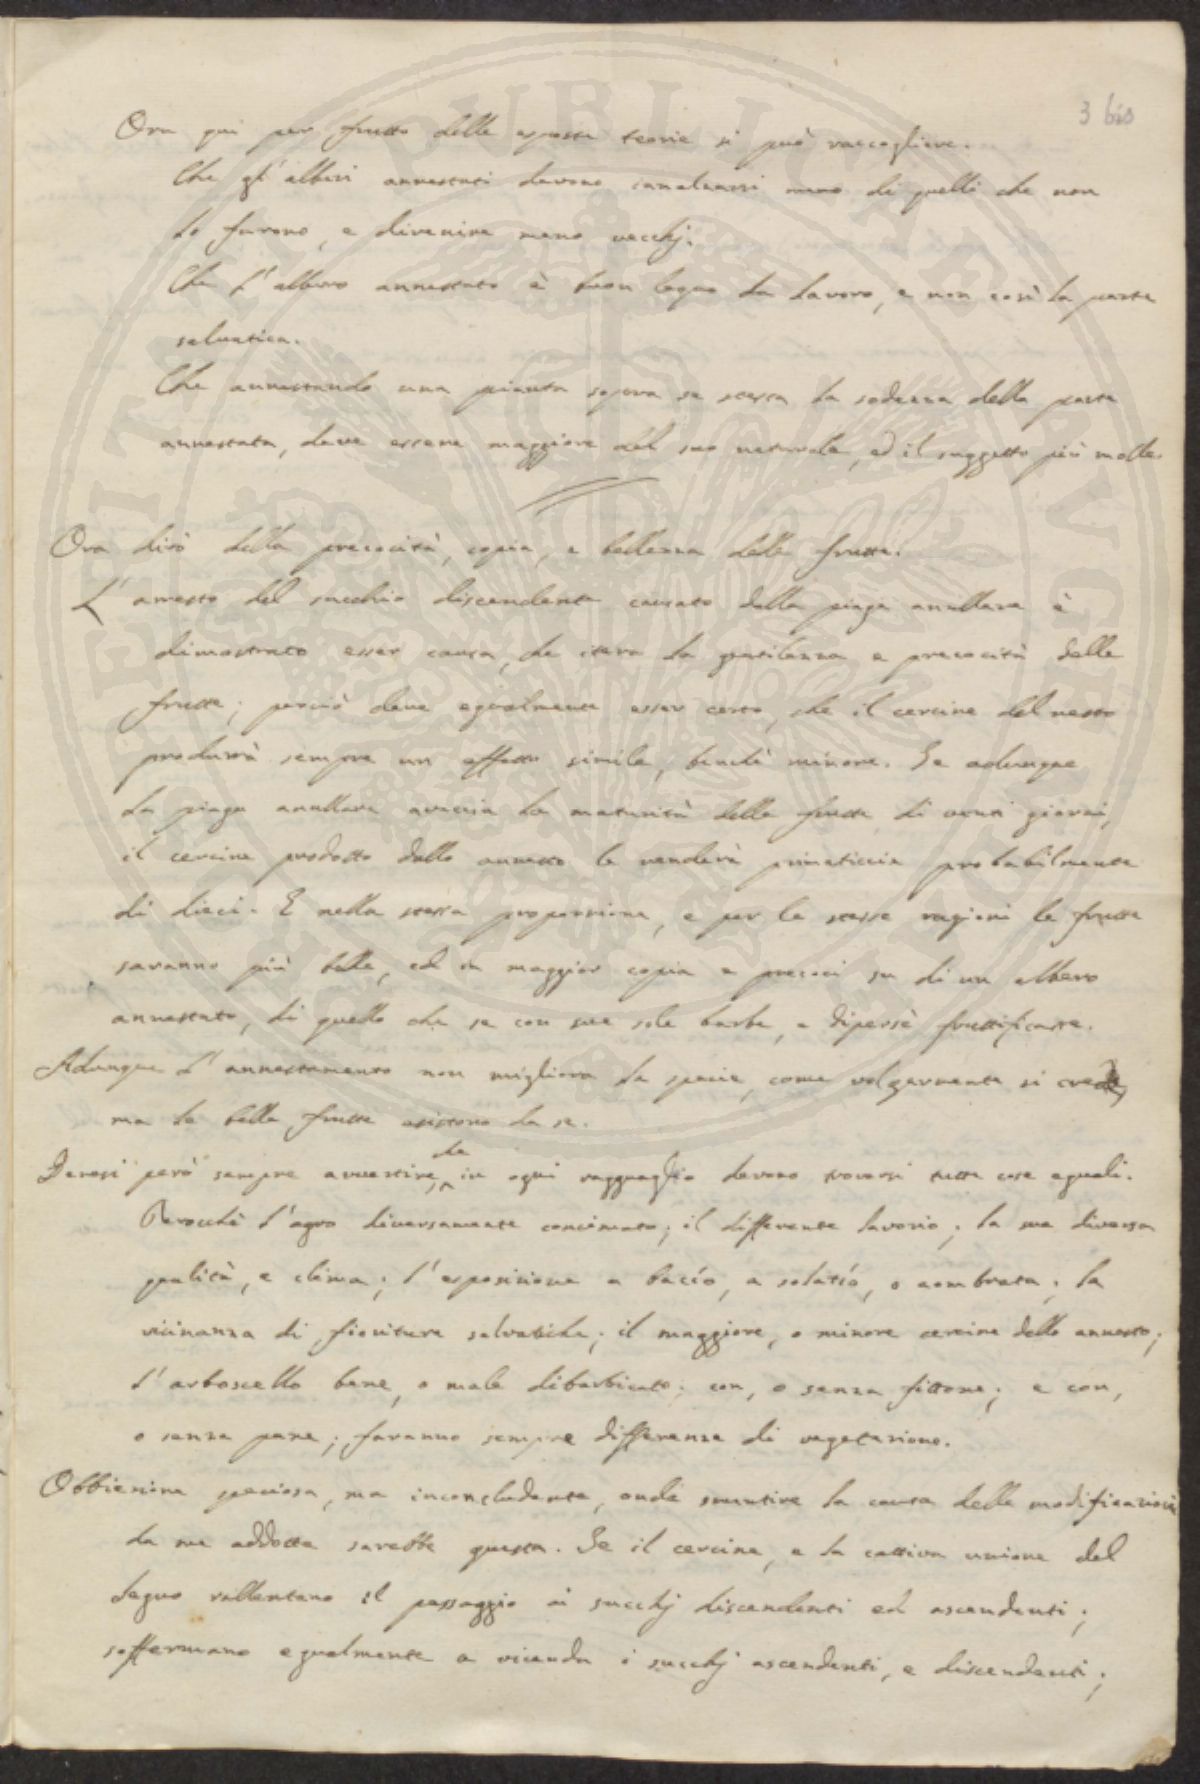 3 bis
Ora qui per frutto delle esposte teorie si può raccogliere.
Che gl'alberi annestati devono inalzarsi meno di quelli che non
lo furono, e divenire meno vecchj.
Che l'albero annestato è buon legno da lavoro, e non così la parte
salvatica.
Che annestando una pianta sopra se stessa la sodezza della parte
annestata, deve essere maggiore del suo naturale, ed il suggetto più molle.
Ora dirò della precocità, copia, e bellezza delle frutte.
L'arresto del succhio discendente causato dalla piaga anullare è
dimostrato esser causa, che itera la gentilezza e precocità delle
frutte; perciò deve egualmente esser certo, che il cercine del nesto
produrrà sempre un effetto simile, benchè minore. Se adunque
la piaga anullare avaccia la maturità delle frutte di venti giorni,
il cercine prodotto dallo annesto le renderà primaticcie probabilmente
di dieci. E nella stessa proporzione, e per le stesse ragioni le frutte
saranno più belle, ed in maggior copia e precoci su di un albero
annestato, di quello che se con sue sole barbe, e dipersè fruttificasse.
Adunque l'annestamento non migliora la specie, come volgarmente si crede,
ma le belle frutte esistono da se.
Devesi però sempre avvertire, che in ogni ragguaglio devono trovarsi tutte cose eguali.
Perocchè l'agro diversamente concimato; il differente lavorio; la sua diversa
qualità, e clima; l'esposizione a bacío, a solatío, o aombrata; la
vicinanza di fioriture salvatiche; il maggiore, o minore cercine dello annesto;
l'arboscello bene, o male dibarbicato; con, o senza fittone; e con,
o senza pane; faranno sempre differenze di vegetazione.
Obbiezione speciosa, ma inconcludente, onde smentire la causa delle modificazioni
da me addotte sarebbe questa. Se il cercine, e la cattiva unione del
legno rallentano il passaggio ai succhj discendenti ed ascendenti;
soffermano egualmente a vicenda i succhj ascendenti, e discendenti;